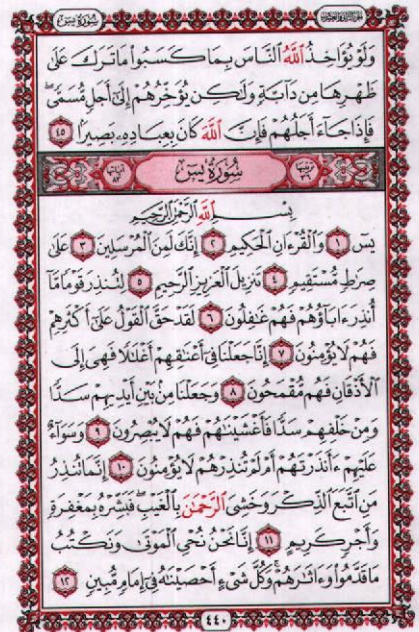 سُورَةُ يس
الجزء الثاني والعشرون
وَلَوْ يُؤَاخِذُ ٱللَّهُ ٱلنَّاسَ بِمَا كَسَبُوا۟ مَا تَرَكَ عَلَىٰ
ظَهْرِهَا مِن دَآبَّةٍ وَلَٰكِن يُؤَخِّرُهُمْ إِلَىٰٓ أَجَلٍ مُّسَمًّى ۖ
فَإِذَا جَآءَ أَجَلُهُمْ فَإِنَّ ٱللَّهَ كَانَ بِعِبَادِهِۦ بَصِيرًۢا ٤٥
ترتيبها ٣٦ سُورَةُ يس آياتها ٨٣
بِسْمِ ٱللَّهِ ٱلرَّحْمَٰنِ ٱلرَّحِيمِ
يسٓ ١ وَٱلْقُرْءَانِ ٱلْحَكِيمِ ٢ إِنَّكَ لَمِنَ ٱلْمُرْسَلِينَ ٣ عَلَىٰ
صِرَٰطٍ مُّسْتَقِيمٍ ٤ تَنزِيلَ ٱلْعَزِيزِ ٱلرَّحِيمِ ٥ لِتُنذِرَ قَوْمًا مَّآ
أُنذِرَ ءَابَآؤُهُمْ فَهُمْ غَٰفِلُونَ ٦ لَقَدْ حَقَّ ٱلْقَوْلُ عَلَىٰٓ أَكْثَرِهِمْ
فَهُمْ لَا يُؤْمِنُونَ ٧ إِنَّا جَعَلْنَا فِىٓ أَعْنَٰقِهِمْ أَغْلَٰلًا فَهِىَ إِلَى
ٱلْأَذْقَانِ فَهُم مُّقْمَحُونَ ٨ وَجَعَلْنَا مِنۢ بَيْنِ أَيْدِيهِمْ سَدًّا
وَمِنْ خَلْفِهِمْ سَدًّا فَأَغْشَيْنَٰهُمْ فَهُمْ لَا يُبْصِرُونَ ٩ وَسَوَآءٌ
عَلَيْهِمْ ءَأَنذَرْتَهُمْ أَمْ لَمْ تُنذِرْهُمْ لَا يُؤْمِنُونَ ١٠ إِنَّمَا تُنذِرُ
مَنِ ٱتَّبَعَ ٱلذِّكْرَ وَخَشِىَ ٱلرَّحْمَٰنَ بِٱلْغَيْبِ ۖ فَبَشِّرْهُ بِمَغْفِرَةٍ
وَأَجْرٍ كَرِيمٍ ١١ إِنَّا نَحْنُ نُحْىِ ٱلْمَوْتَىٰ وَنَكْتُبُ
مَا قَدَّمُوا۟ وَءَاثَٰرَهُمْ ۚ وَكُلَّ شَىْءٍ أَحْصَيْنَٰهُ فِىٓ إِمَامٍ مُّبِينٍ ١٢
٤٤٠